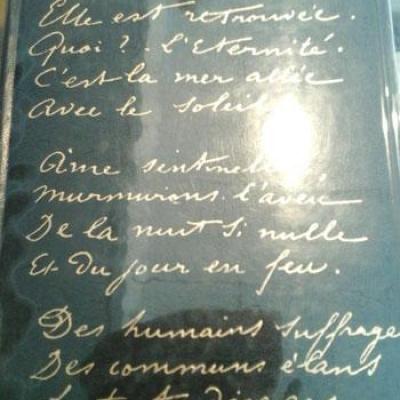 Elle est retrouvée.
Quoi ? - L'Eternité.
C'est la mer allée
Avec le soleil
Ame sentinelle
Murmurons l'aveu
De la nuit si nulle
Et du jour en feu.
Des humains suffrages
Des communs élans